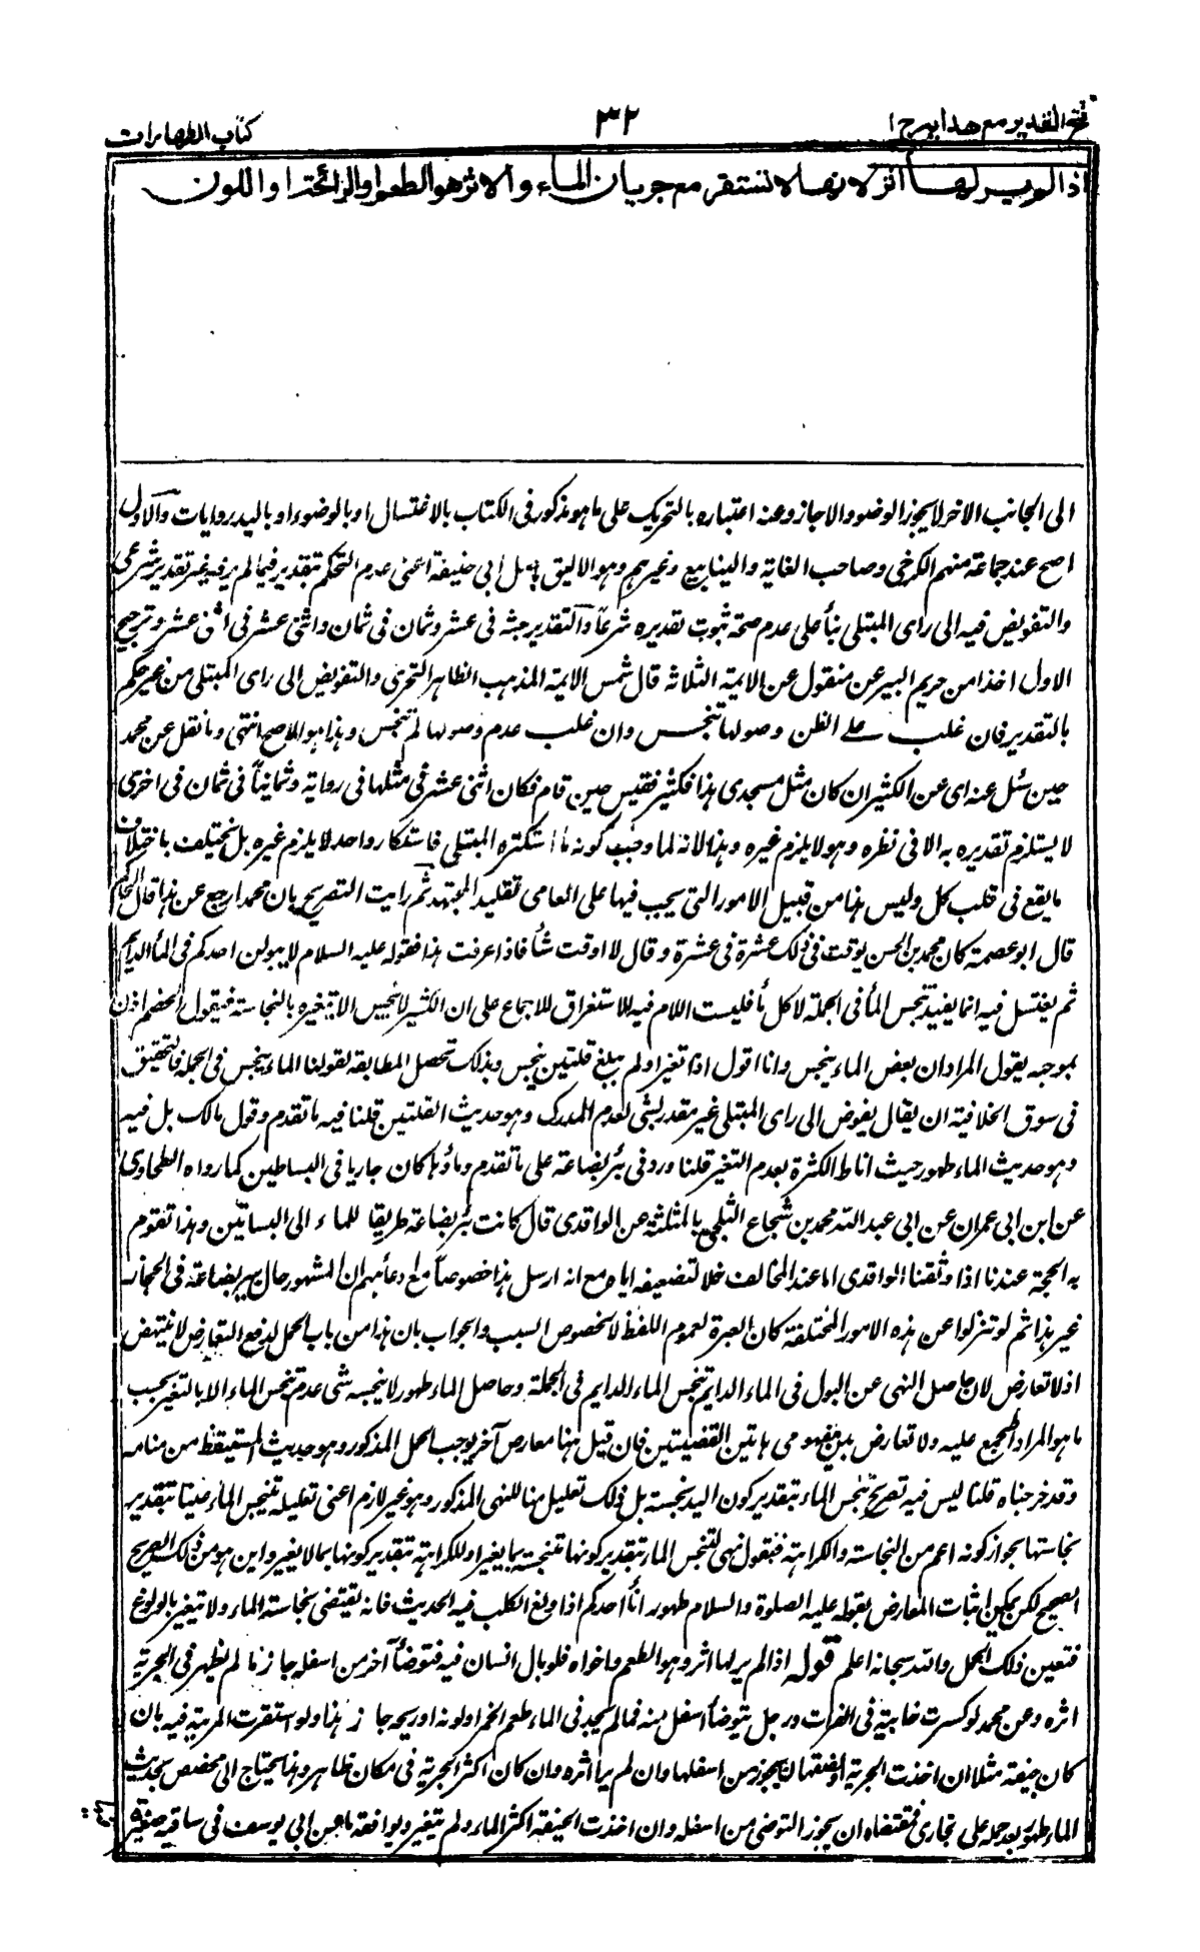 فتح القدير مع هدايہ ج ۱
۳۲
كتاب الطهارات
اذا لم ير لها اثر لانها لا تستقر مع جريان الماء والاثر هو الطعم او الرائحة او اللون
الى الجانب الاخر لا يجوز الوضوء والا جاز وعنه اعتباره بالتحريك على ما هو مذكور فى الكتاب بالاغتسال او بالوضوء او باليد روايات والاول
اصح عند جماعة منهم الكرخى وصاحب الغاية والينابيع وغيرهم وهو الاليق باصل ابى حنيفة اعنى عدم التحكم بتقدير فيما لم يرد فيه تقدير شرعى
والتفويض فيه الى راى المبتلى بنأ على عدم صحة ثبوت تقديره شرعاً والتقدير بعشر فى عشر وثمان فى ثمان واثنى عشر فى اثنى عشر وترجيح
الاول اخذا من حريم البير عن منقول عن الايمة الثلاثة قال شمس الايمة المذهب الظاهر التحرى والتفويض الى راى المبتلى من غير حكم
بالتقدير فان غلب على الظن وصولها تنجس وان غلب عدم وصولها لم تنجس وهذا هو الاصح انتهى وما نقل عن محمد
حين سئل عنه اى عن الكثير ان كان مثل مسجدى هذا فكثير فقيس حين قام فكان اثنى عشر فى مثلها فى رواية وثمانياً فى ثمان فى اخرى
لا يستلزم تقديره به الا فى نظره وهو لا يلزم غيره وهذا لانه لما وجب كونه ما استكثره المبتلى فاستكثار واحد لا يلزم غيره بل يختلف باختلاف
ما يقع فى قلب كل وليس هذا من قبيل الامور التى يجب فيها على العامى تقليد المجتهد ثم رايت التصريح بان محمدا رجع عن هذا قال الحاكم
قال ابو عصمة كان محمد بن الحسن يوقت فى ذلك عشرة فى عشرة وقال لا اوقت شأ فاذا عرفت هذا فقوله عليه السلام لا يبولن احدكم فى المأ الدايم
ثم يغتسل فيه انما يفيد تنجس المأ فى الجملة لا كل مأ فليست اللام فيه للاستغراق للاجماع على ان الكثير لا ينجس الا بتغيره بالنجاسة فيقول الخصم اذن
بموجبه يقول المراد ان بعض الماء ينجس وانا اقول اذا تغير او لم يبلغ قلتين ينجس وبذلك تحصل المطابقة لقولنا الماء ينجس فى الجملة فالتحقيق
فى سوق الخلافية ان يقال يفوض الى راى المبتلى غير مقدر بشئ لعدم المدرك وهو حديث القلتين قلنا فيه ما تقدم وقول مالك بل فيه
وهو حديث الماء طهور حيث اناط الكثرة بعدم التغير قلنا ورد فى بئر بضاعة على ما تقدم وماؤها كان جاريا فى البساطين كما رواه الطحاوى
عن ابن ابى عمران عن ابى عبد الله محمد بن شجاع الثلجى بالمثلثة عن الواقدى قال كانت بئر بضاعة طريقا للماء الى البساتين وهذا تقوم
به الحجة عندنا اذا وثقنا الواقدى اما عند المخالف فلا لتضعيفه اياه مع انه ارسل هذا خصوصاً مع ادعائهم ان المشهور حال بير بضاعة فى الحجاز
غير هذا ثم لو تنزلوا عن هذه الامور المختلفة كان العبرة لعموم اللفظ لا لخصوص السبب والجواب بان هذا من باب الحمل لدفع التعارض لا ينتهض
اذ لا تعارض لان حاصل النهى عن البول فى الماء الدايم تنجس الماء الدايم فى الجملة وحاصل الماء طهور لا ينجسه شى عدم تنجس الماء الا بالتغير بحسب
ما هو المراد المجمع عليه ولا تعارض بين مفهومى هاتين القضيتين فان قيل هنا معارض آخر يوجب الحمل المذكور وهو حديث المستيقظ من منامه
وقد خرجناه قلنا ليس فيه تصريح بتنجس الماء بتقدير كون اليد نجسة بل ذلك تعليل منا للنهى المذكور وهو غير لازم اعنى تعليله بتنجيس الماء عينا بتقدير
نجاستها بجواز كونه اعم من النجاسة والكراهة فنقول نهى لتنجس الماء بتقدير كونها متنجسة بما يغير او للكراهة بتقدير كونها بما لا يغير واين هو من ذلك الصريح
الصحيح لكن يمكن اثبات المعارض بقوله عليه الصلوة والسلام طهور انأ احدكم اذا ولغ الكلب فيه الحديث فانه يقتضى نجاسة الماء ولا تغير بالولوغ
فتعين ذلك الحمل والله سبحانه اعلم قوله اذا لم ير لها اثر وهو الطعم واخواه فلو بال انسان فيه فتوضأ آخر من اسفله جاز ما لم يظهر فى الجرية
اثره وعن محمد لو كسرت خابية فى الفرات ورجل يتوضأ اسفل منه فما لم يجد فى الماء طعم الخمر او لونه او ريحه جاز هذا ولو استقرت المرئية فيه بان
كان جيفة مثلا ان اخذت الجرية او نصفها لا يجوز من اسفلها وان لم ير اثره وان كان اكثر الجرية فى مكان طاهر وهذا يحتاج الى مخصص بحديث
الماء طهور بعد حمله على الجارى فمقتضاه ان يجوز التوضى من اسفله وان اخذت الجيفة اكثر الماء ولم يتغير ويوافقه ما عن ابى يوسف فى ساقية صغيرة